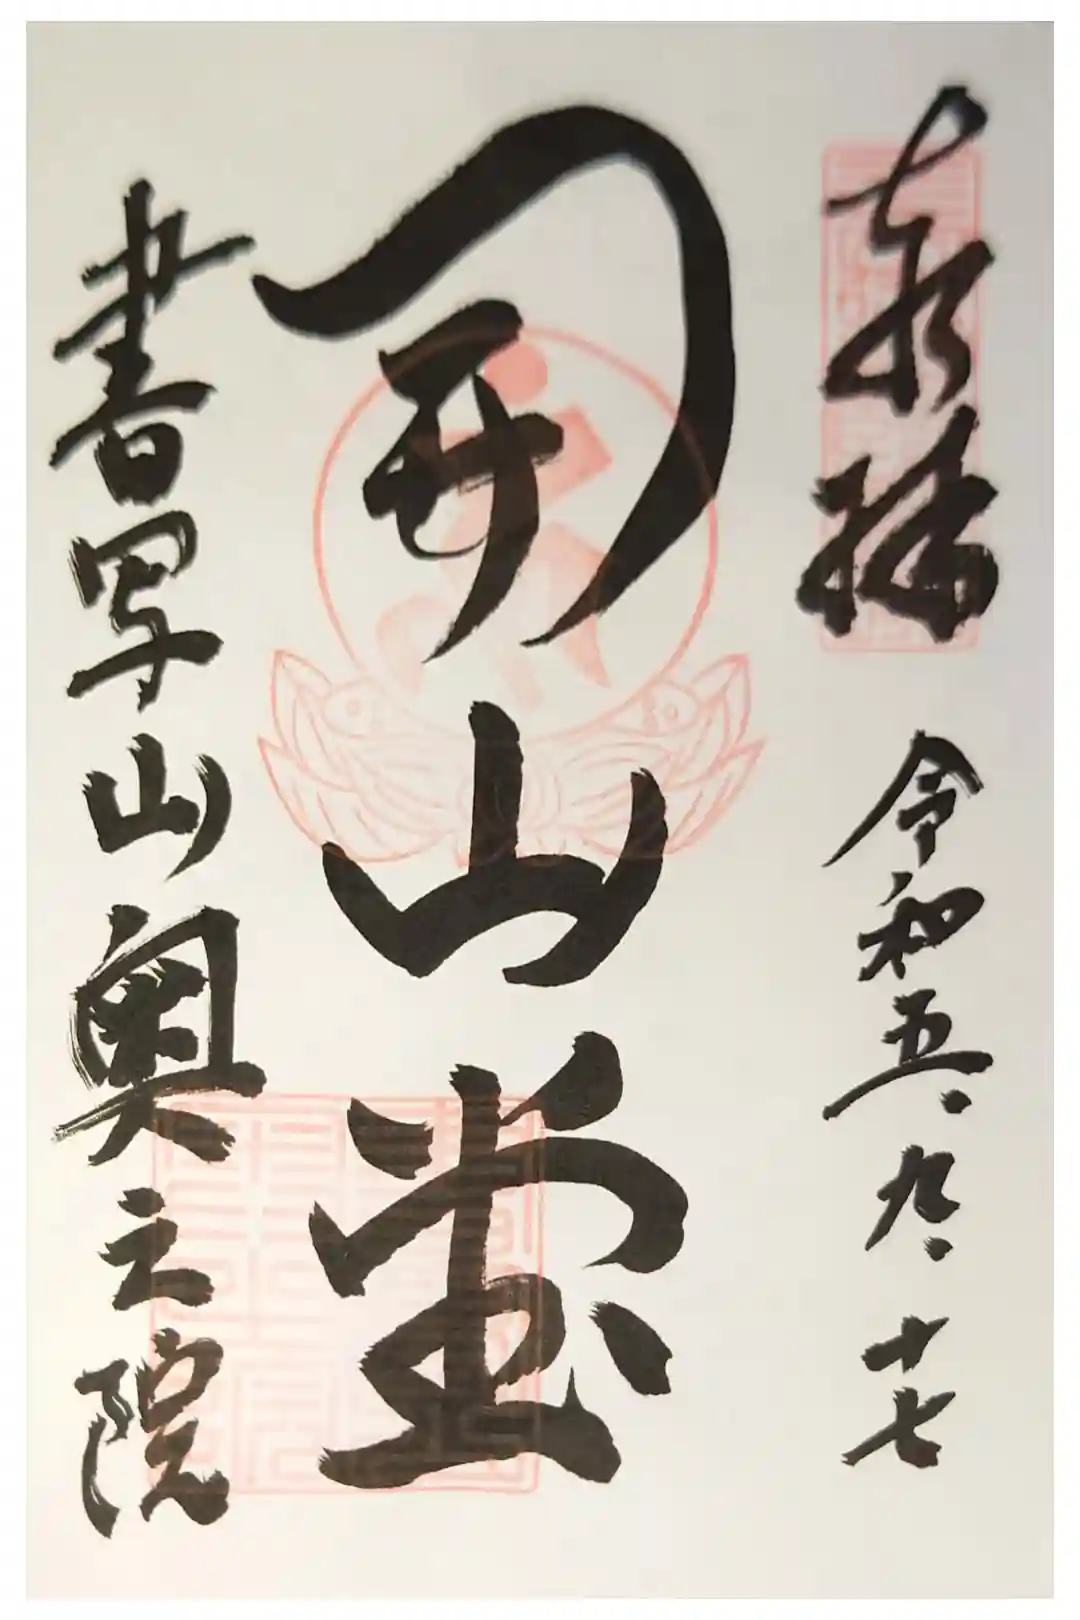 奉拝 令和五、九、十七
開山堂
書写山奥之院